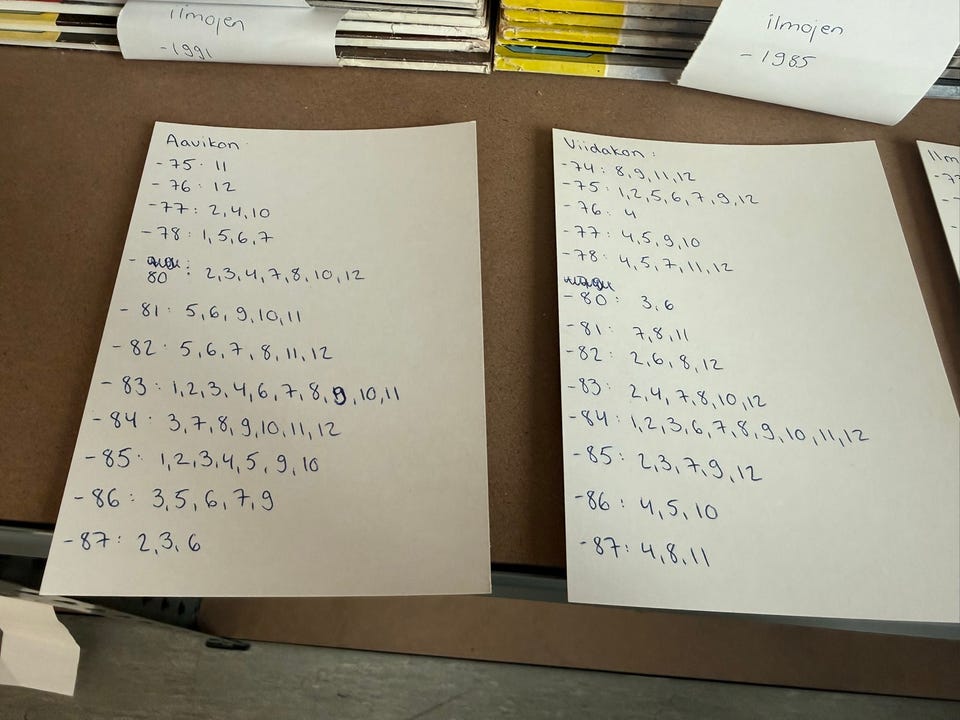 ilmojen
-1991
ilmojen
-1985
Aavikon
-75: 11
-76: 12
-77: 2,4,10
-78: 1,5,6,7
-80: 2,3,4,7,8,10,12
-81: 5,6,9,10,11
-82: 5,6,7,8,11,12
-83: 1,2,3,4,6,7,8,9,10,11
-84: 3,7,8,9,10,11,12
-85: 1,2,3,4,5,9,10
-86: 3,5,6,7,9
-87: 2,3,6
Viidakon:
-74: 8,9,11,12
-75: 1,2,5,6,7,9,12
-76: 4
-77: 4,5,9,10
-78: 4,5,7,11,12
-80: 3,6
-81: 7,8,11
-82: 2,6,8,12
-83: 2,4,7,8,10,12
-84: 1,2,3,6,7,8,9,10,11,12
-85: 2,3,7,9,12
-86: 4,5,10
-87: 4,8,11